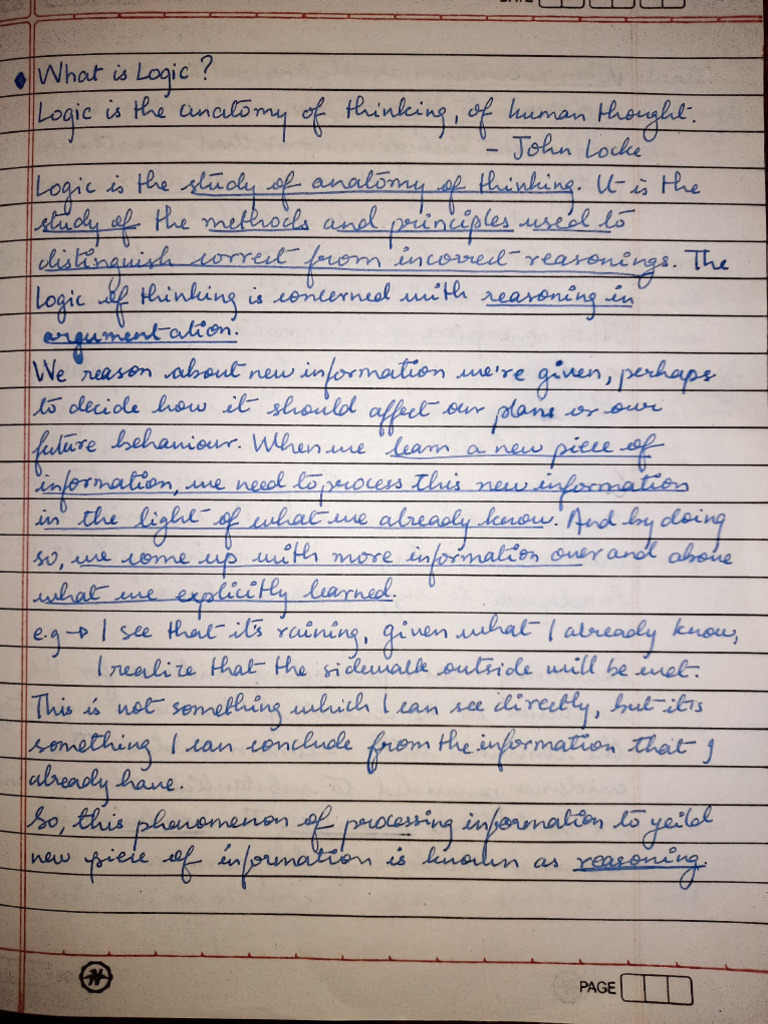 DATE
What is Logic?
Logic is the anatomy of thinking, of human thought.
- John Locke
Logic is the study of anatomy of thinking. It is the
study of the methods and principles used to
distinguish correct from incorrect reasonings. The
logic of thinking is concerned with reasoning in
argumentation.
We reason about new information we're given, perhaps
to decide how it should affect our plans or our
future behaviour. When we learn a new piece of
information, we need to process this new information
in the light of what we already know. And by doing
so, we come up with more information over and above
what we explicitly learned.
e.g → I see that it's raining, given what I already know,
I realize that the sidewalk outside will be wet.
This is not something which I can see directly, but it's
something I can conclude from the information that I
already have.
So, this phenomenon of processing information to yeild
new piece of information is known as reasoning.
PAGE